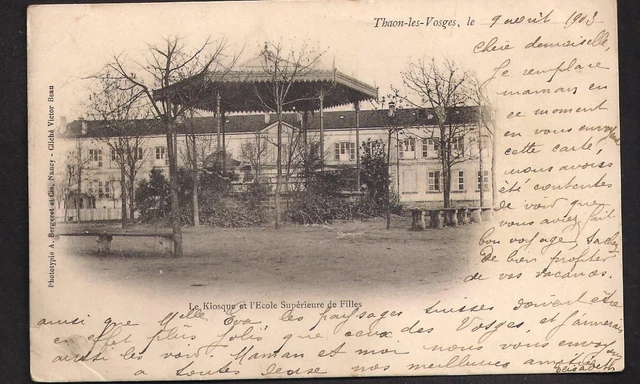 Thaon-les-Vosges, le 9 août 1903
Chère demoiselle,
Je remplace
maman en
ce moment
en vous envoy
cette carte,
nous avons
été contentes
de voir que
vous aviez fait
bon voyage, tachez
de bien profiter
de vos vacances.
Phototypie A. Bergeret et Cie, Nancy - Cliché Victor Beau
Le Kiosque et l'Ecole Supérieure de Filles
ainsi que Melle Eva, les paysages suisses doivent être
en effet plus jolis que ceux des Vosges, et j'aimerais
aussi les voir. Maman et moi nous vous envoy
à toutes deux nos meilleures amitiés
Elisabeth